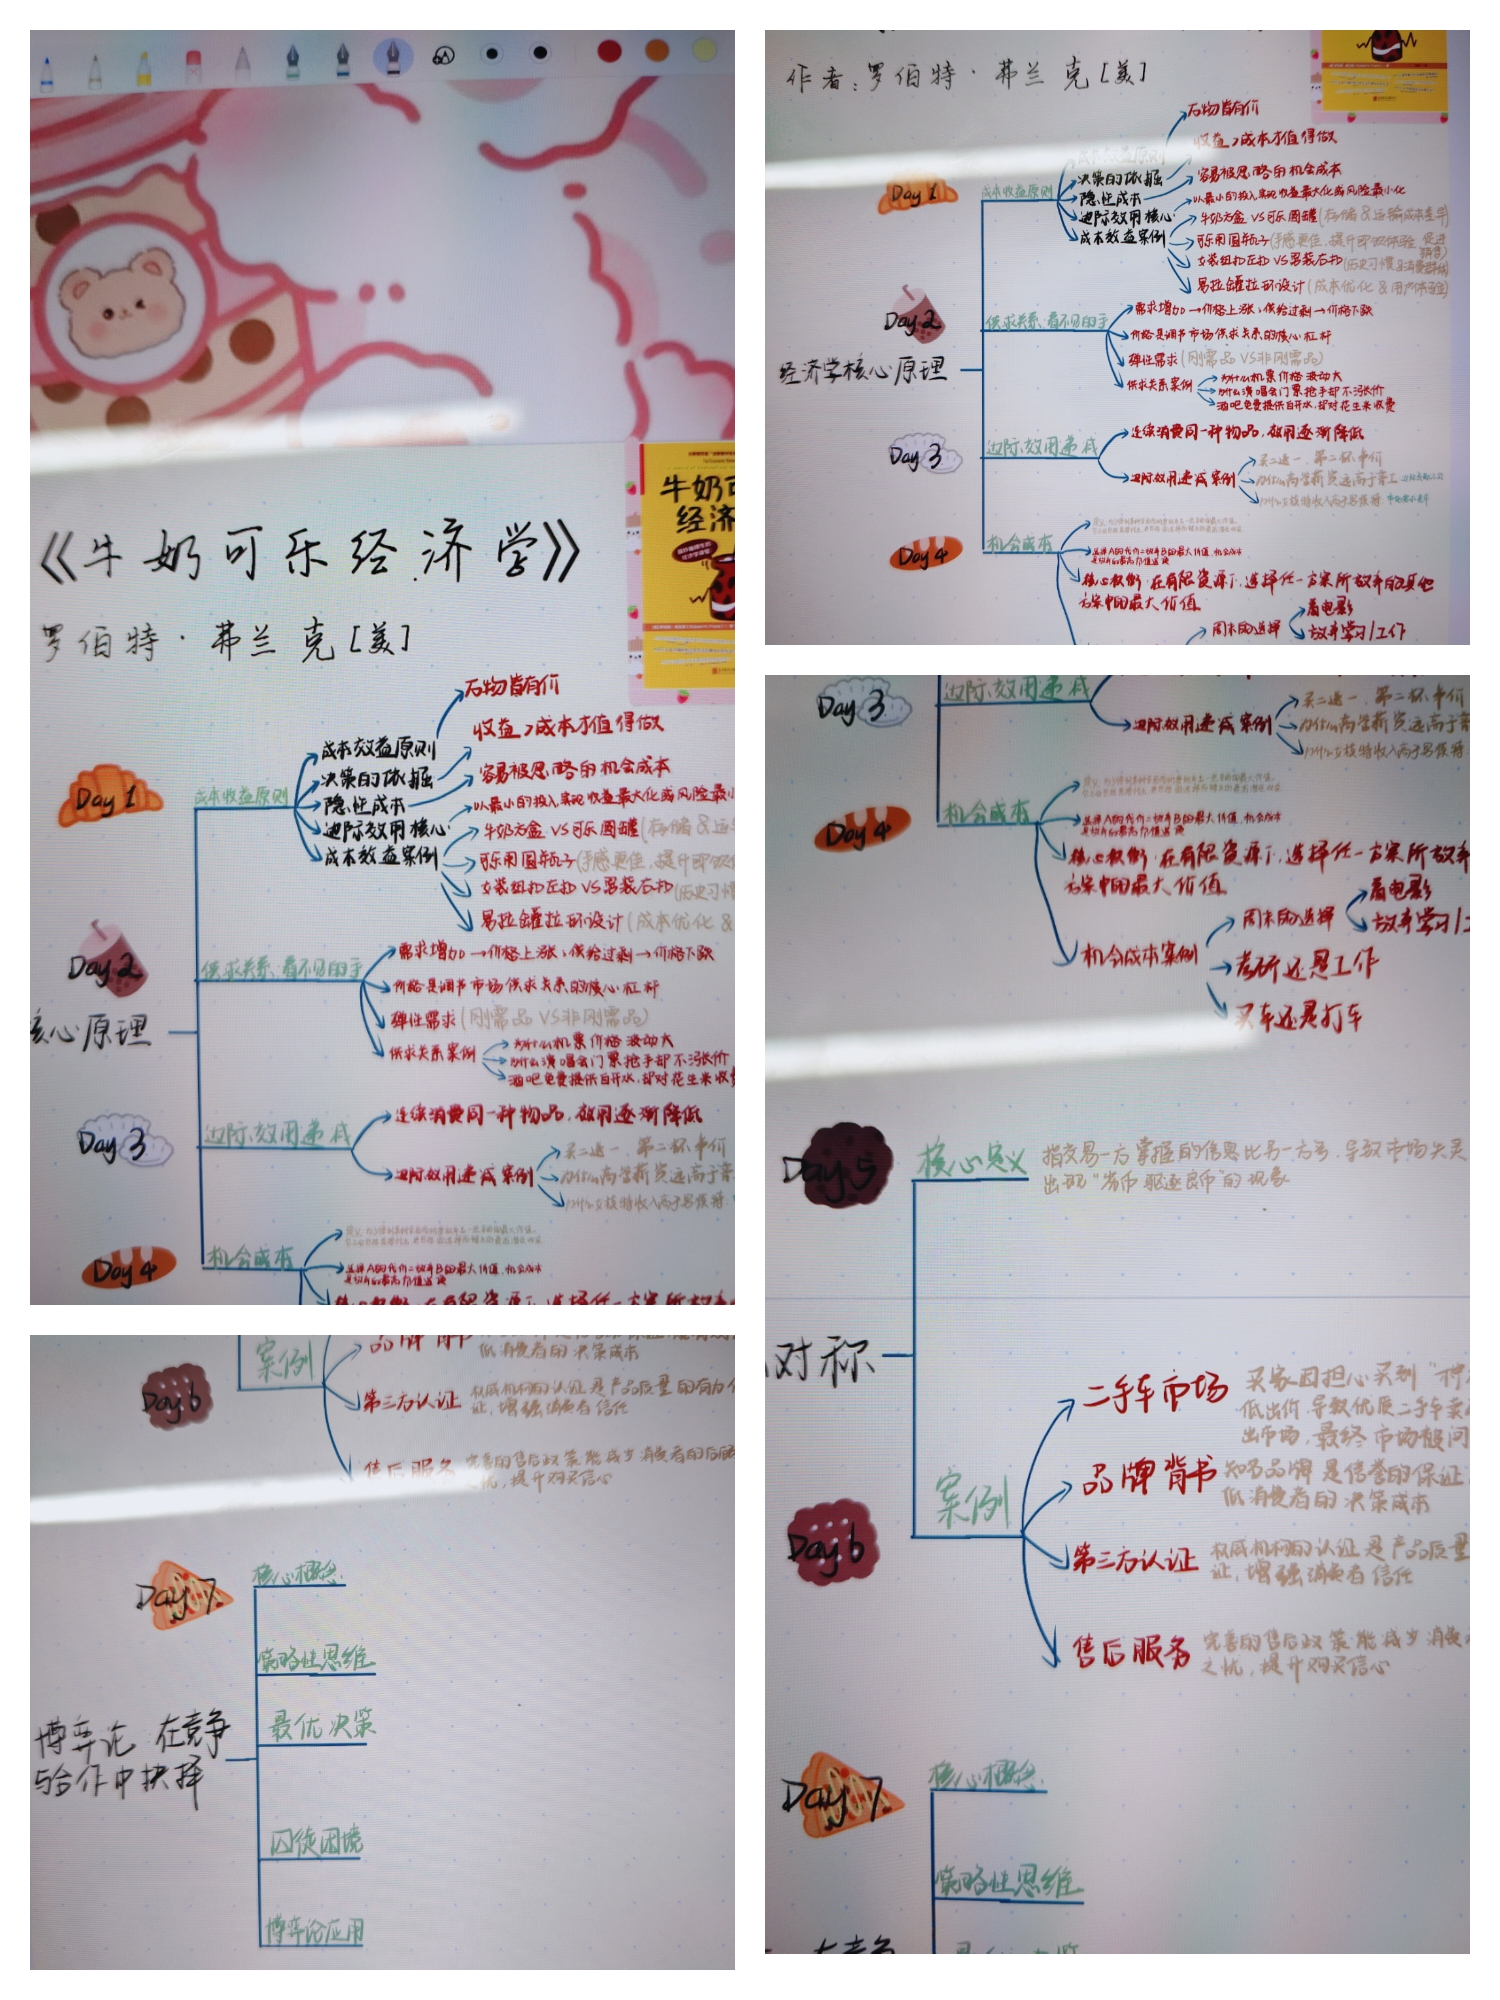 《牛奶可乐经济学》
罗伯特·弗兰克[美]
牛奶可
经济
万物皆有价
收益>成本才值得做
成本效益原则
决策的依据
容易被忽略的机会成本
Day 1
成本收益原则
隐性成本
以最小的投入实现收益最大化或风险最小
边际效用核心
牛奶方盒 VS可乐圆罐(存储&运
成本效益案例
可乐用圆瓶子(手感更佳,提升即饮体
女装纽扣左扣 VS男装右扣(历史习惯
易拉罐拉环设计(成本优化&
Day 2
供求关系:看不见的手
需求增加→价格上涨;供给过剩→价格下跌
价格是调节市场供求关系的核心杠杆
弹性需求(刚需品 VS非刚需品)
核心原理
供求关系案例
为什么机票价格波动大
为什么演唱会门票抢手却不涨价
酒吧免费提供白开水,却对花生米收费
Day 3
边际效用递减
连续消费同一种物品,效用逐渐降低
边际效用递减案例
买二送一、第二杯半价
为什么高学薪资远高于普
为什么女模特收入高于男模特
Day 4
机会成本
作者:罗伯特·弗兰克[美]
万物皆有价
收益>成本才值得做
Day 1
成本收益原则
决策的依据
容易被忽略的机会成本
隐性成本
以最小的投入实现收益最大化或风险最小化
边际效用核心
牛奶方盒 VS可乐圆罐(存储&运输成本差异)
成本效益案例
可乐用圆瓶子(手感更佳,提升即饮体验,促进销售)
女装纽扣左扣 VS男装右扣(历史习惯&消费群体)
易拉罐拉环设计(成本优化&用户体验)
Day 2
供求关系:看不见的手
需求增加→价格上涨;供给过剩→价格下跌
价格是调节市场供求关系的核心杠杆
弹性需求(刚需品 VS非刚需品)
经济学核心原理
供求关系案例
为什么机票价格波动大
为什么演唱会门票抢手却不涨价
酒吧免费提供白开水,却对花生米收费
Day 3
边际效用递减
连续消费同一种物品,效用逐渐降低
边际效用递减案例
买二送一、第二杯半价
为什么高学薪资远高于普工
为什么女模特收入高于男模特
Day 4
机会成本
选择A的代价=放弃B的最大价值,机会成本
是放弃的最高价值选项
核心权衡:在有限资源下,选择任一方案所放弃的其他
方案中的最大价值
周末的选择
看电影
放弃学习/工作
Day 3
边际效用递减
边际效用递减案例
买二送一、第二杯半价
为什么高学薪资远高于普
为什么女模特收入高于男模特
Day 4
机会成本
选择A的代价=放弃B的最大价值,机会成本
是放弃的最高价值选项
核心权衡:在有限资源下,选择任一方案所放弃
方案中的最大价值
机会成本案例
周末的选择
看电影
放弃学习/工
考研还是工作
买车还是打车
Day 5
核心定义
指交易一方掌握的信息比另一方多,导致市场失灵
出现“劣币驱逐良币”的现象
对称
二手车市场
买家因担心买到“柠
低出价,导致优质二手车卖
出市场,最终市场被问
品牌背书
知名品牌是信誉的保证
低消费者的决策成本
案例
Day 6
第三方认证
权威机构的认证是产品质量
证,增强消费者信任
售后服务
完善的售后政策能减少消费
之忧,提升购买信心
Day 7
核心概念
策略性思维
案例
品牌背书
低消费者的决策成本
Day 6
第三方认证
权威机构的认证是产品质量的有力
证,增强消费者信任
售后服务
完善的售后政策能减少消费者的后顾
之忧,提升购买信心
Day 7
核心概念
策略性思维
最优决策
博弈论 在竞争
与合作中抉择
囚徒困境
博弈论应用